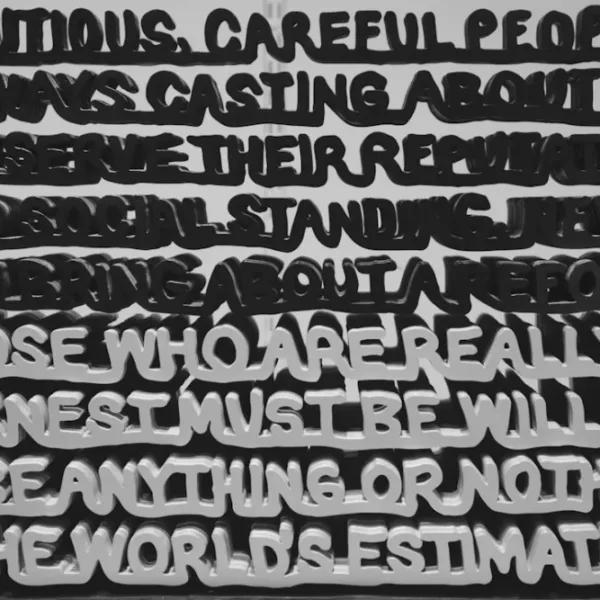 UTIOUS, CAREFUL PEOP
WAYS CASTING ABOUT
SERVE THEIR REPUTATI
D SOCIAL STANDING, NEV
BRING ABOUT A REFO
OSE WHO ARE REALLY
RNEST MUST BE WILL
BE ANYTHING OR NOTH
HE WORLD'S ESTIMATI